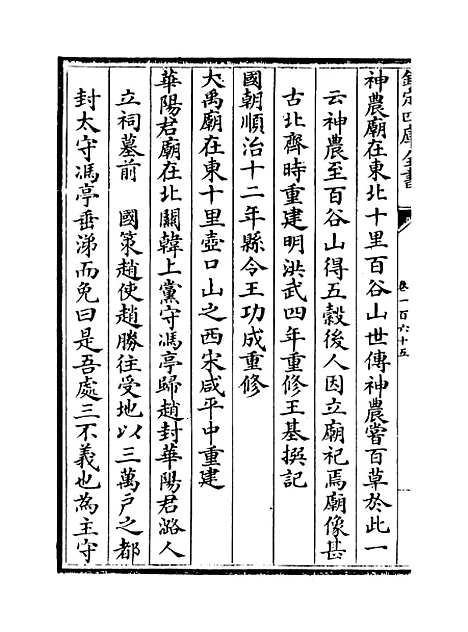 欽定四庫全書
卷一百六十五
神農廟在東北十里百谷山世傳神農嘗百草於此一
云神農至百谷山得五穀後人因立廟祀焉廟像甚
古北齊時重建明洪武四年重修王基撰記
國朝順治十二年縣令王功成重修
大禹廟在東十里壺口山之西宋咸平中重建
華陽君廟在北關韓上黨守馮亭歸趙封華陽君潞人
立祠墓前　國策趙使趙勝往受地以三萬戶之都
封太守馮亭垂涕而免曰是吾處三不義也為主守